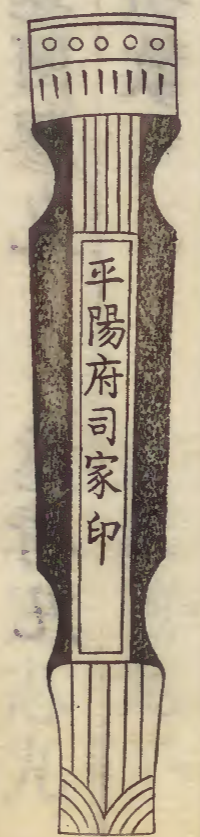 平陽府司家印